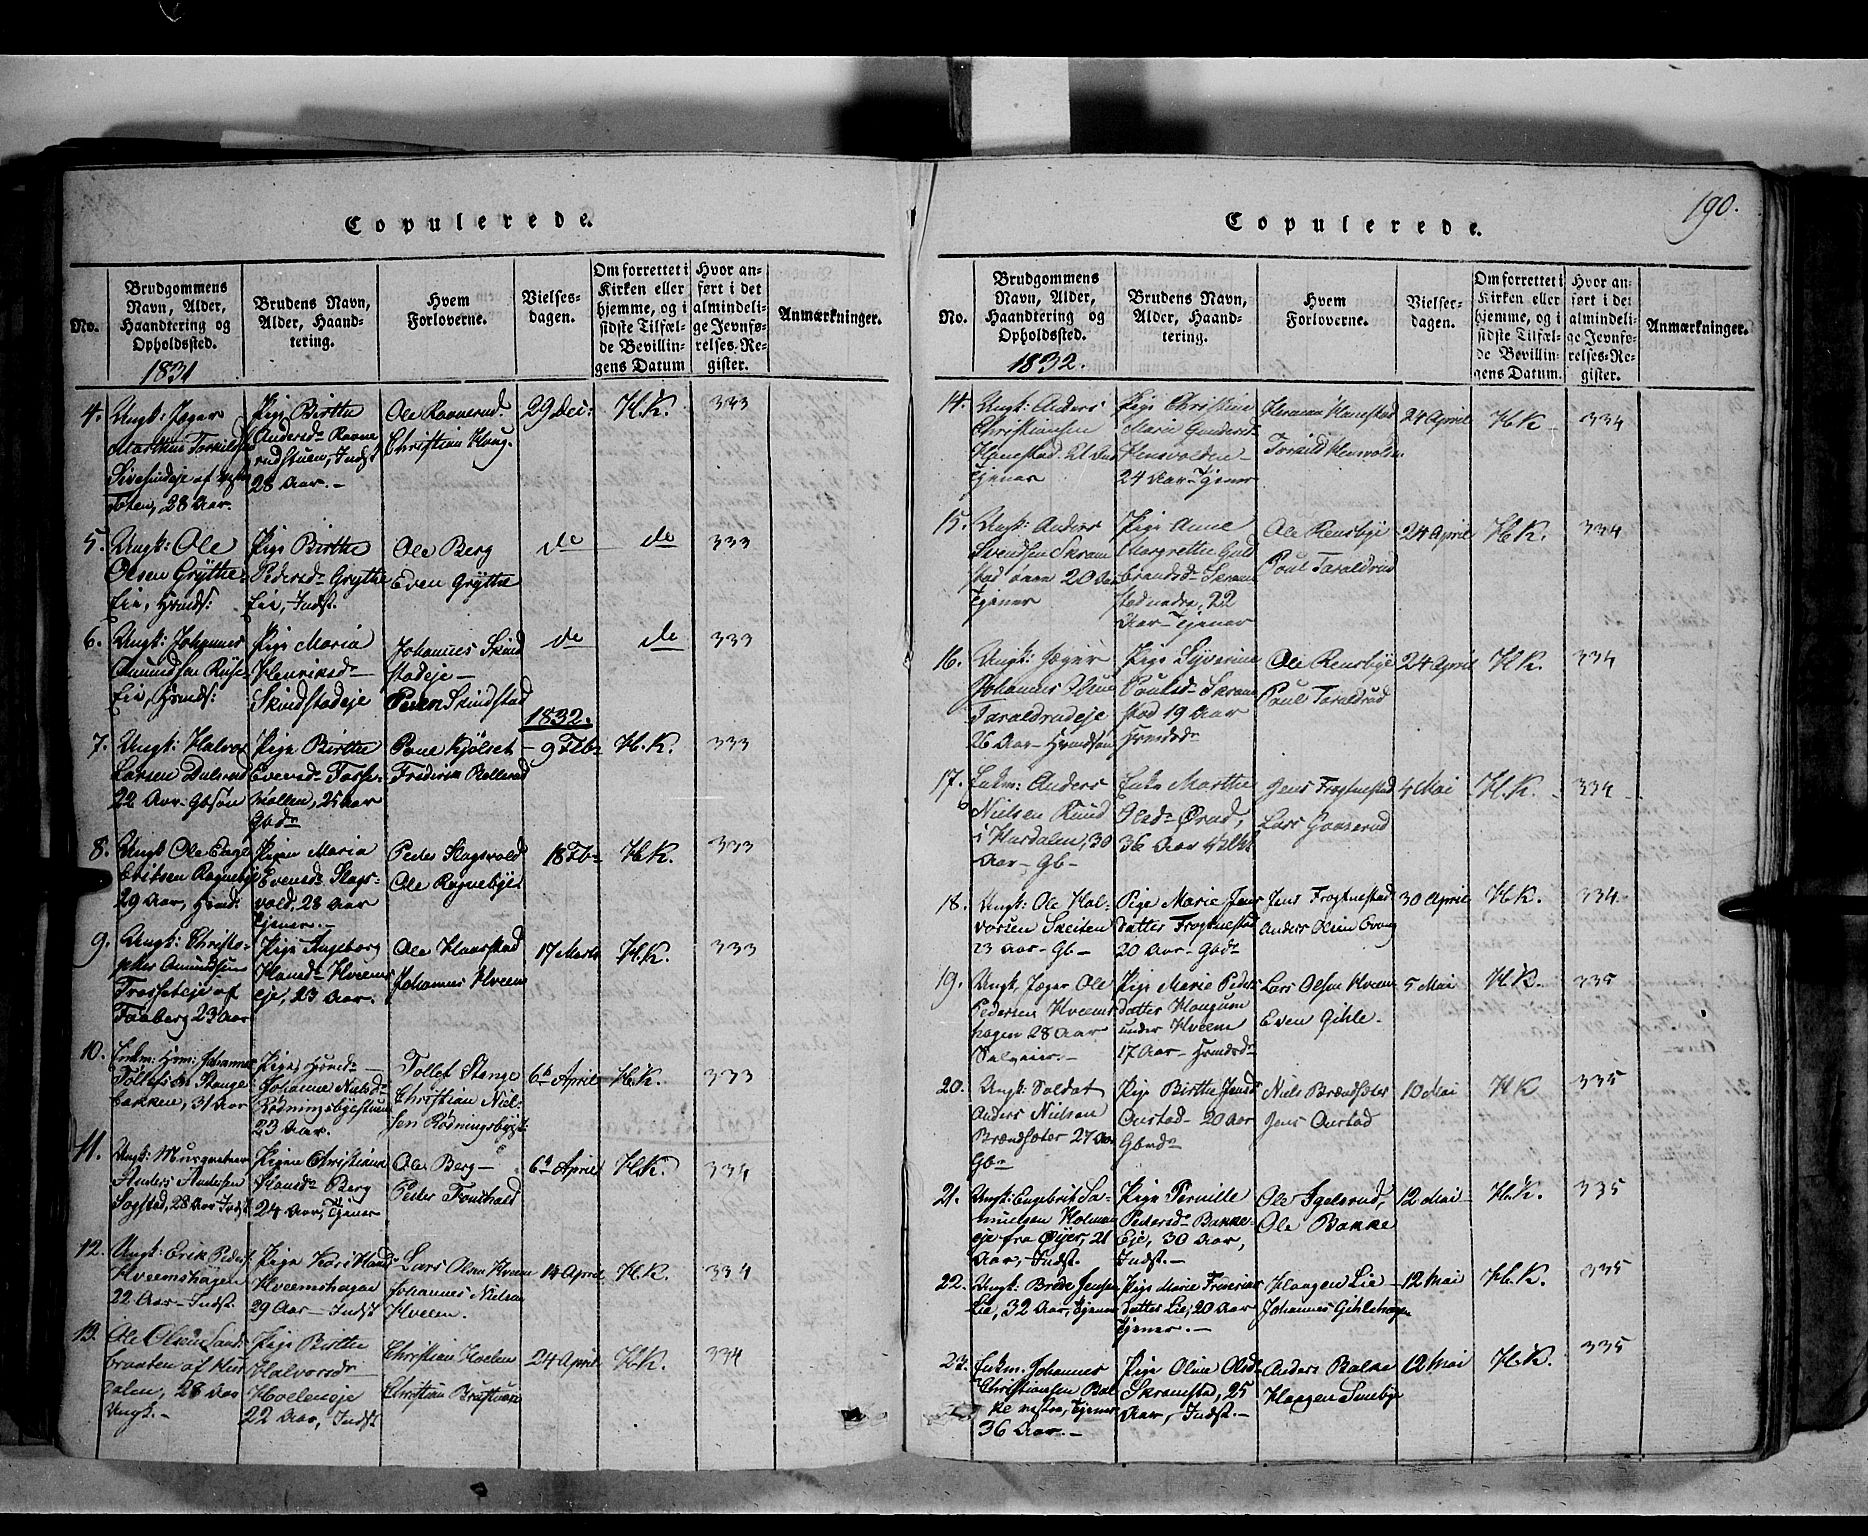 190.
Copulerede.
No.
Brudgommens
Navn, Alder,
Haandtering og
Opholdssted.
1831
Brudens Navn,
Alder, Haand-
tering.
Hvem
Forloverne.
Vielses-
dagen.
Om forrettet i
Kirken eller
hjemme, og i
sidste Tilfæl-
de Bevillin-
gens Datum
Hvor an-
ført i det
almindeli-
ge Jevnfø-
relses-Re-
gister.
Anmærkninger.
4.
Ungk: Jæger
28 Aar.
Pige Birthe
Andersd Ravne
rudstuen, Indst
28 Aar.-
Ole Ravnerud.
Christian Haug.
29 Dec:
H.K.
333
5.
Ungk: Ole
Olsen Grÿthe-
Eie, Huusds:
Pige Birthe
Pedersd Grythe
Eie, Indst.
Ole Berg
Even Grÿthe
do
do
333
6.
Ungk: Johannes
Amundsen
Eie, Huusds:
Pige Maria
Henriksd
Skindstadeje
Johannes Skind
stadeje-
Peder Skindstad
do
do
333
1832.
7.
Ungk: Halvor
Larsen
22 Aar. Gbsøn
Pige Birthe
Evensd
25 Aar
Gbdr
Poul Kjølset
Frederik
9 Feb
H.K.
333
8.
Ungk Ole Enge
britsen Ragnebye
29 Aar,
Pigen Maria
Evensd: Slags-
vold, 28 Aar
Tjener.-
Peder Slagsvold
Ole Ragnebye
18 Feb
H.K.
333
9.
Ungk: Christo-
pher Amundsen
Faaberg 23 Aar
Pige Ingeborg
Hansd Hveems
eje, 23 Aar.
Ole Haarstad
Johannes Hveem
17 Marts
H.K.
333
10.
Enkm: Johannes
Tollefsen Stange
bakken, 31 Aar
Pige
Johanne Nielsd
Rødningsbyestuen
23 Aar.
Tollef Stange
Christian Niel-
sen Rødningsbye
6 April
H.K.
333
11.
Ungk: Musqueteer
Anders Andersen
Sogstad, 28 Aar Indst
Pigen Christiane
Hansd Berg
24 Aar, Tjener
Ole Berg-
Peder
6 April
H.K.
334
12.
Ungk: Erik Peders
Hveemshagen
22 Aar- Indst.
Pige Kari Hansd
Hveemshagen
29 Aar- Indst
Lars Olsen Hveem
Johannes Nielsen
Hveem.
14 April
H.K.
334
13.
Ole Olsen Sand
braaten af Hur
dalen, 28 Aar
Ungk.-
Pige Birthe
Halvorsd
Hoelenseje
22 Aar, Indst
Christian Hoelen
Christian
24 April
H.K.
334
Copulerede.
No.
Brudgommens
Navn, Alder,
Haandtering og
Opholdssted.
1832.
Brudens Navn,
Alder, Haand-
tering.
Hvem
Forloverne.
Vielses-
dagen.
Om forrettet i
Kirken eller
hjemme, og i
sidste Tilfæl-
de Bevillin-
gens Datum.
Hvor an-
ført i det
almindeli-
ge Jevnfø-
relses-Re-
gister.
Anmærkninger.
14.
Ungk: Anders
Christiansen
Hanestad. 21 Aar
Tjener
Pige Christine
Marie Gundersd
24 Aar- Tjener
Herman Hanestad
24 April
H.K
334
15.
Ungk: Anders
Svendsen Skram
stad øvre 20 Aar
Tjener
Pige Anne
Margrethe Guld
brandsd Skram
stad nedre, 22
Aar- Tjener
Ole Rensbye
Paul Taraldrud
24 April
H.K.
334
16.
Ungk: Jæger
Johannes
Taraldrudeje
26 Aar-
Pige Syverine
Paulsd Skram
stad 19 Aar
Ole Rensbye
Paul Taraldrud
24 April
H.K.
334
17.
Enkm: Anders
Nielsen Ruud
i Hurdalen, 30
Aar- Gb-
Enke Marthe
Olsd
36 Aar
Jens Frognestad
Lars
4 Mai
H.K.
334
18.
Ungk: Ole Hal-
vorsen Sveiten
23 Aar- Gb-
Pige Marie Jens
datter Frognestad
20 Aar- Gbdr
Jens Frognestad
Anders Olsen
30 April
H.K.
334.
19.
Ungk. Jæger Ole
Pedersen Hveems
hagen 28 Aar
Pige Marie Peders
datter Haugum
under Hveem
17 Aar-
Lars Olsen Hveem
Even Gihle.
5 Mai
H.K.
335
20.
Ungk: Soldat
Anders Nielsen
Brændsæter 27 Aar
Gb
Pige Birthe Jensd
Onstad- 20 Aar
Gbdr
Niels Brændsæter
Jens Onstad
10 Mai
H.K
335
21.
Ungk: Engebrit Sa-
muelsen Holman
eje fra Øyer, 21
Aar, Indst.
Pige Pernille
Pedersd Bakke-
Eje, 30 Aar,
Indst.-
Ole Igelsrud,
Ole Bakke
12 Mai
H.K.
335
22.
Ungk: Brede Jensen
Lie, 32 Aar, Tjener
Pige Marie Frederiks
datter Lie, 20 Aar
Tjener.-
Haagen Lie
Johannes Gihlehagen
12 Mai
H.K.
335
23.
Enkm. Johannes
Christiansen Bal
ke nedre, Tjener
36 Aar.-
Pige Oline Olsd
Skramstad, 25
Aar, Indst.-
Anders Balke
Haagen Suneby
12 Mai
H.K.
335